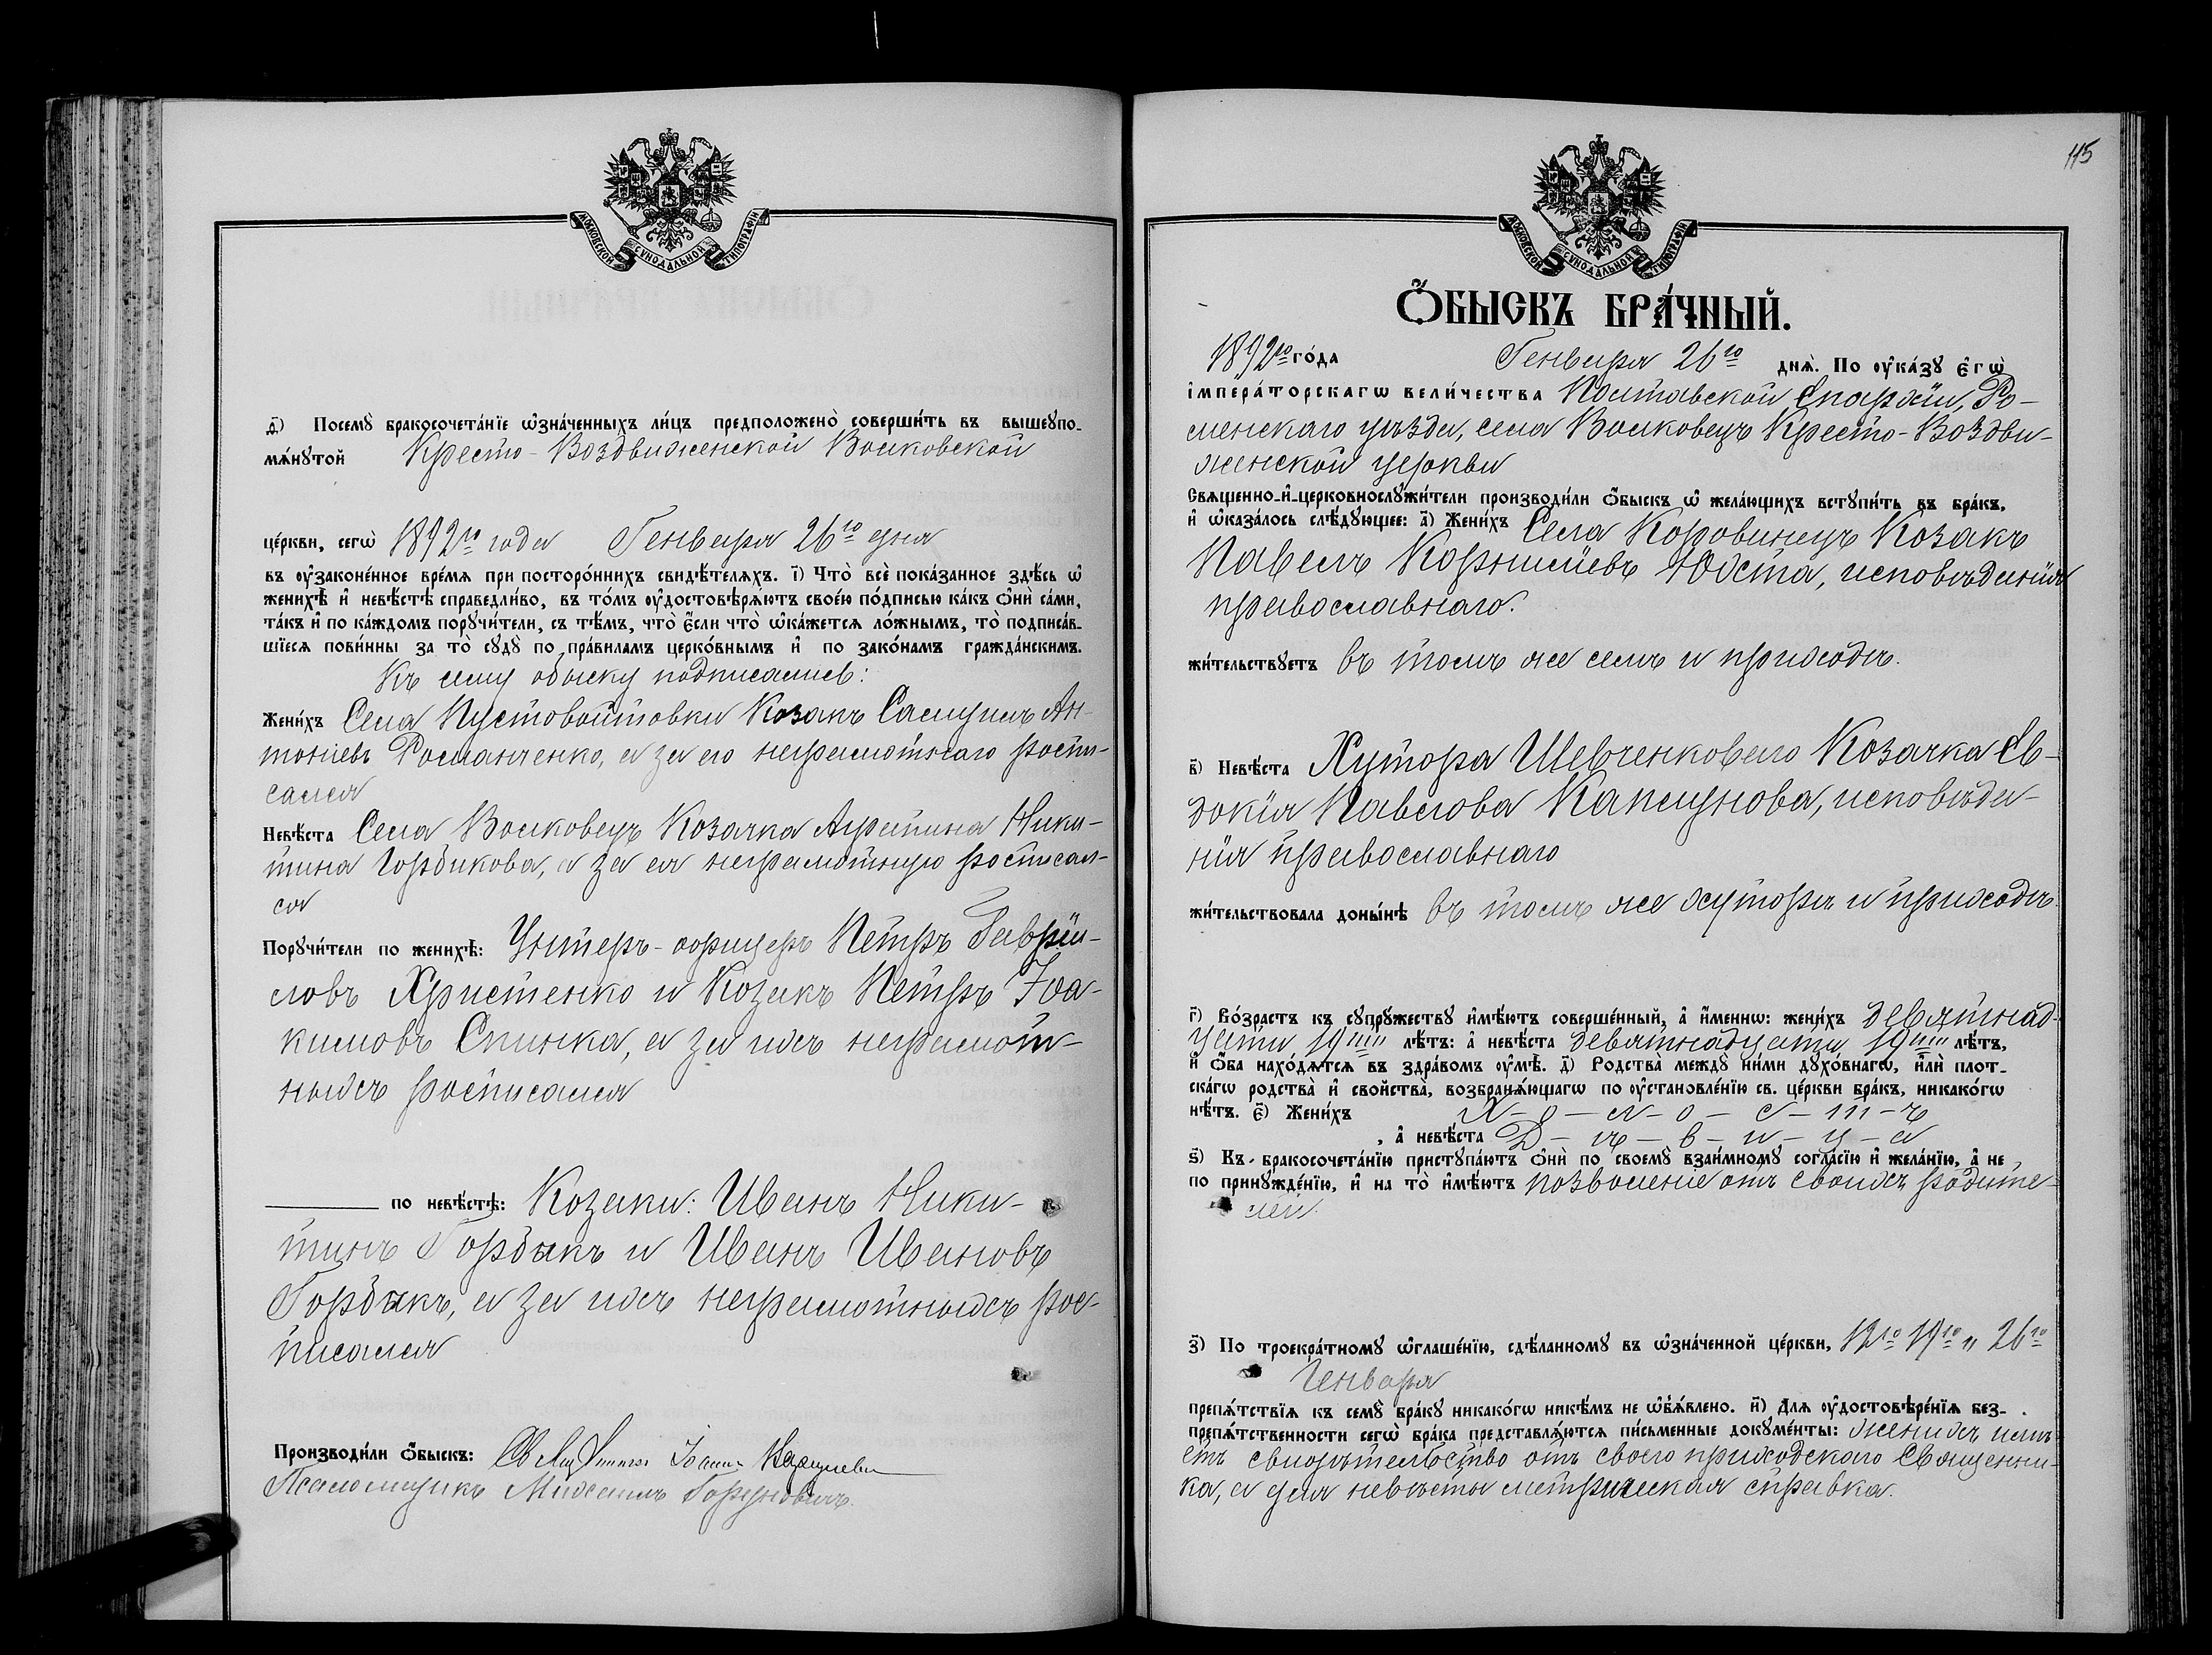 МОСКОВСКОЙ СѴНОДАЛЬНОЙ ТИПОГРАФІИ
д҃) Посемꙋ̀ бракосочета́нїе ѡ҆зна́ченныхъ ли́цъ предположено̀ соверши́ть въ вышеꙋпо-
мѧ́нꙋтой Кресто-Воздвиженской Волковской
це́ркви, сегѡ̀ 1892го года Генваря 26го дня
въ ᲂу҆законе́нное вре́мѧ при посторо́ннихъ свидѣ́телѧхъ. і҃) Что̀ всѐ пока́занное здѣ́сь ѡ҆
женихѣ̀ и҆ невѣ́стѣ справедли́во, въ то́мъ ᲂу҆достовѣрѧ́ютъ свое́ю по́дписью ка́къ ѻ҆нѝ са́ми,
та́къ и҆ по ка́ждомъ порꙋчи́тели, съ тѣ́мъ, что̀ є҆́сли что̀ ѡ҆ка́жетсѧ ло́жнымъ, то̀ подписа́в-
шїесѧ пови́нны за то̀ сꙋдꙋ̀ по пра́виламъ церко́внымъ и҆ по зако́намъ гражда́нскимъ.
Къ сему обыску подписались:
Жени́хъ Села Пустовойтовки Козакъ Самуилъ Ан-
тоніевъ Романченко, а за его неграмотнаго роспи-
сался
Невѣ́ста Села Волковецъ Козачка Агрипина Ники-
тина Горбикова, а за ея неграмотную росписал-
ся
Порꙋчи́тели по женихѣ̀: Унтеръ-офицеръ Петръ Гаврiи-
ловъ Христенко и Козакъ Петръ Іоа-
кимовъ Спинка, а за ихъ неграмот-
ныхъ росписался
по невѣ́стѣ: Козаки: Иванъ Ники-
тинъ Горбикъ и Иванъ Ивановъ
Горбикъ, а за ихъ неграмотныхъ рос-
писался
Производи́ли ѻ҆́быскъ: Іоаннъ
Псаломщикъ Михаилъ
115
МОСКОВСКОЙ СѴНОДАЛЬНОЙ ТИПОГРАФІИ
Ѻ҆́БЫСКЪ БРА́ЧНЫЙ.
1892го го́да Генваря 26го днѧ̀. По ᲂу҆ка́зꙋ є҆гѡ̀
і҆мпера́торскагѡ вели́чества Полтавской Епархіи, Ро-
менскаго уѣзда, села Волковецъ Кресто-Воздви-
женской церкви
Свѧще́нно-и҆-церковнослꙋжи́тели производи́ли ѻ҆́быскъ ѡ҆ жела́ющихъ встꙋпи́ть въ бра́къ,
и҆ ѡ҆каза́лось слѣ́дꙋющее: а҃) Жени́хъ Села Коровинецъ Козакъ
Павелъ Корниліевъ Юдста, исповѣданія
православнаго.
жи́тельствꙋетъ въ томъ же селѣ и приходѣ.
в҃) Невѣ́ста Хутора Шевченковаго Козачка Ев-
докія Павлова Каплунова, исповѣда-
нія православнаго
жи́тельствовала доны́нѣ въ томъ же хуторѣ и приходѣ.
г҃) Во́зрастъ къ сꙋпрꙋ́жествꙋ и҆мѣ́ютъ соверше́нный, а҆ и҆́меннѡ: жени́хъ девятнад-
цати 19ти лѣ́тъ: а҆ невѣ́ста девятнадцати 19ти лѣ́тъ,
и҆ ѻ҆́ба нахо́дѧтсѧ въ здра́вомъ ᲂу҆мѣ̀. д҃) Родства̀ междꙋ̀ ни́ми дꙋхо́внагѡ, и҆лѝ плот-
ска́гѡ родства̀ и҆ свойства̀, возбранѧ́ющагѡ по ᲂу҆становле́нїю св. це́ркви бра́къ, никако́гѡ
нѣ́тъ. є҃) Жени́хъ Х-о-л-о-с-т-ъ
, а҆ невѣ́ста Д-ѣ-в-и-ц-а
ѕ҃) Къ бракосочета́нїю пристꙋпа́ютъ ѻ҆нѝ по своемꙋ̀ взаи́мномꙋ согла́сїю и҆ жела́нїю, а҆ не
по принꙋжде́нїю, и҆ на то̀ и҆мѣ́ютъ позволеніе отъ своихъ родите-
лей.
з҃) По троекра́тномꙋ ѡ҆глаше́нїю, сдѣ́ланномꙋ въ ѡ҆зна́ченной це́ркви, 12го 19го и 26го
Генваря
препѧ́тствїѧ къ семꙋ̀ бра́кꙋ никако́гѡ никѣ́мъ не ѡ҆б̾ѧ́влено. и҃) Для ᲂу҆достовѣре́нїѧ без-
препѧ́тственности сегѡ̀ бра́ка представлѧ́ютсѧ пи́сьменные докꙋме́нты: женихъ имѣ-
етъ свидѣтельство отъ своего приходскаго Священни-
ка, а для невѣсты метрическая справка.